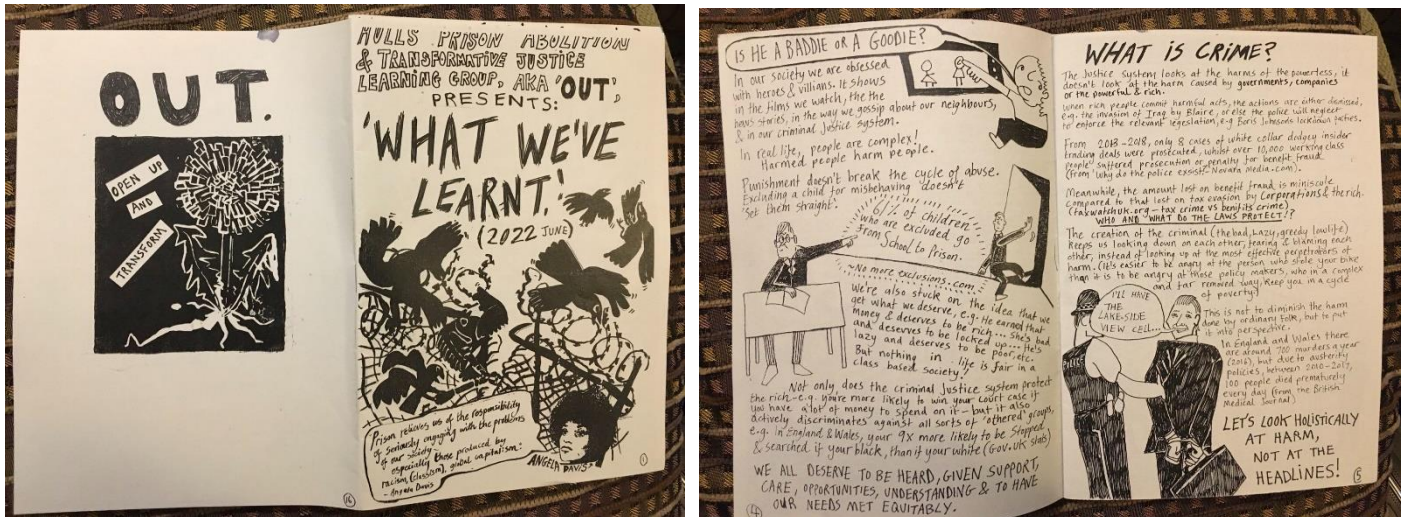 OUT.
OPEN UP
AND
TRANSFORM
16
HULLS PRISON ABOLITION
& TRANSFORMATIVE JUSTICE
LEARNING GROUP, AKA 'OUT',
PRESENTS:
'WHAT WE'VE
LEARNT.'
(2022 JUNE)
Prison relieves us of the responsibility
of seriously engaging with the problems
of our society
especially those produced by
racism, [classism], global capitalism."
- Angela Davis
ANGELA DAVIS
1
IS HE A BADDIE OR A GOODIE?
In our society we are obsessed
with heroes & villians. It shows
in the films we watch, the the
news stories, in the way we gossip about our neighbours,
& in our criminal justice system.
In real life, people are complex!
Harmed people harm people.
Punishment doesn't break the cycle of abuse.
Excluding a child for misbehaving doesn't
'set them straight'.
61% of children
who are excluded go
from School to Prison.
~No more exclusions.com
We're also stuck on the idea that we
get what we deserve, e.g. He earned that
money & deserves to be rich... She's bad
and deserves to be locked up... He's
lazy and deserves to be poor, etc.
But nothing in life is fair in a
class based society!
Not only, does the criminal justice system protect
the rich - e.g. you're more likely to win your court case if
you have a lot of money to spend on it - but it also
actively discriminates against all sorts of 'othered' groups,
e.g. In England & Wales, your 9x more likely to be stopped
& searched if your black, than if your white (Gov.uk stats)
WE ALL DESERVE TO BE HEARD, GIVEN SUPPORT,
CARE, OPPORTUNITIES, UNDERSTANDING & TO HAVE
OUR NEEDS MET EQUITABLY.
(4)
WHAT IS CRIME?
The Justice system looks at the harms of the powerless, it
doesn't look at the harm caused by governments, companies
or the powerful & rich.
When rich people commit harmful acts, the actions are either dismissed,
e.g. the invasion of Iraq by Blaire, or else the police will neglect
to enforce the relevant legislation, e.g Boris Johnsons lockdown parties.
From 2013-2018, only 8 cases of white collar dodgey insider
trading deals were prosecuted, whilst over 10,000 working class
people suffered prosecution or penalty for benefit fraud.
(from 'Why do the police exsist'- Novara media.com).
Meanwhile, the amount lost on benefit fraud is miniscule
compared to that lost on tax evasion by Corporations & the rich.
(taxwatchuk.org - tax crime vs benifits crime)
WHO AND WHAT DO THE LAWS PROTECT!?
The creation of the criminal (the bad, lazy, greedy lowlife)
keeps us looking down on each other, fearing & blaming each
other, instead of looking up at the most effective perpetrators of
harm. (It's easier to be angry at the person who stole your bike
than it is to be angry at those policy makers, who in a complex
and far removed way, keep you in a cycle
of poverty)
I'LL HAVE
THE
LAKE-SIDE
VIEW CELL...
POLICE
This is not to diminish the harm
done by ordinary folk, but to put
it into perspective.
In England and Wales there
are around 700 murders a year
(2016), but due to austerity
policies, between 2010-2019,
100 people died prematurely
every day (from the British
Medical Journal)
LET'S LOOK HOLISTICALLY
AT HARM,
NOT AT THE
HEADLINES!
(5)